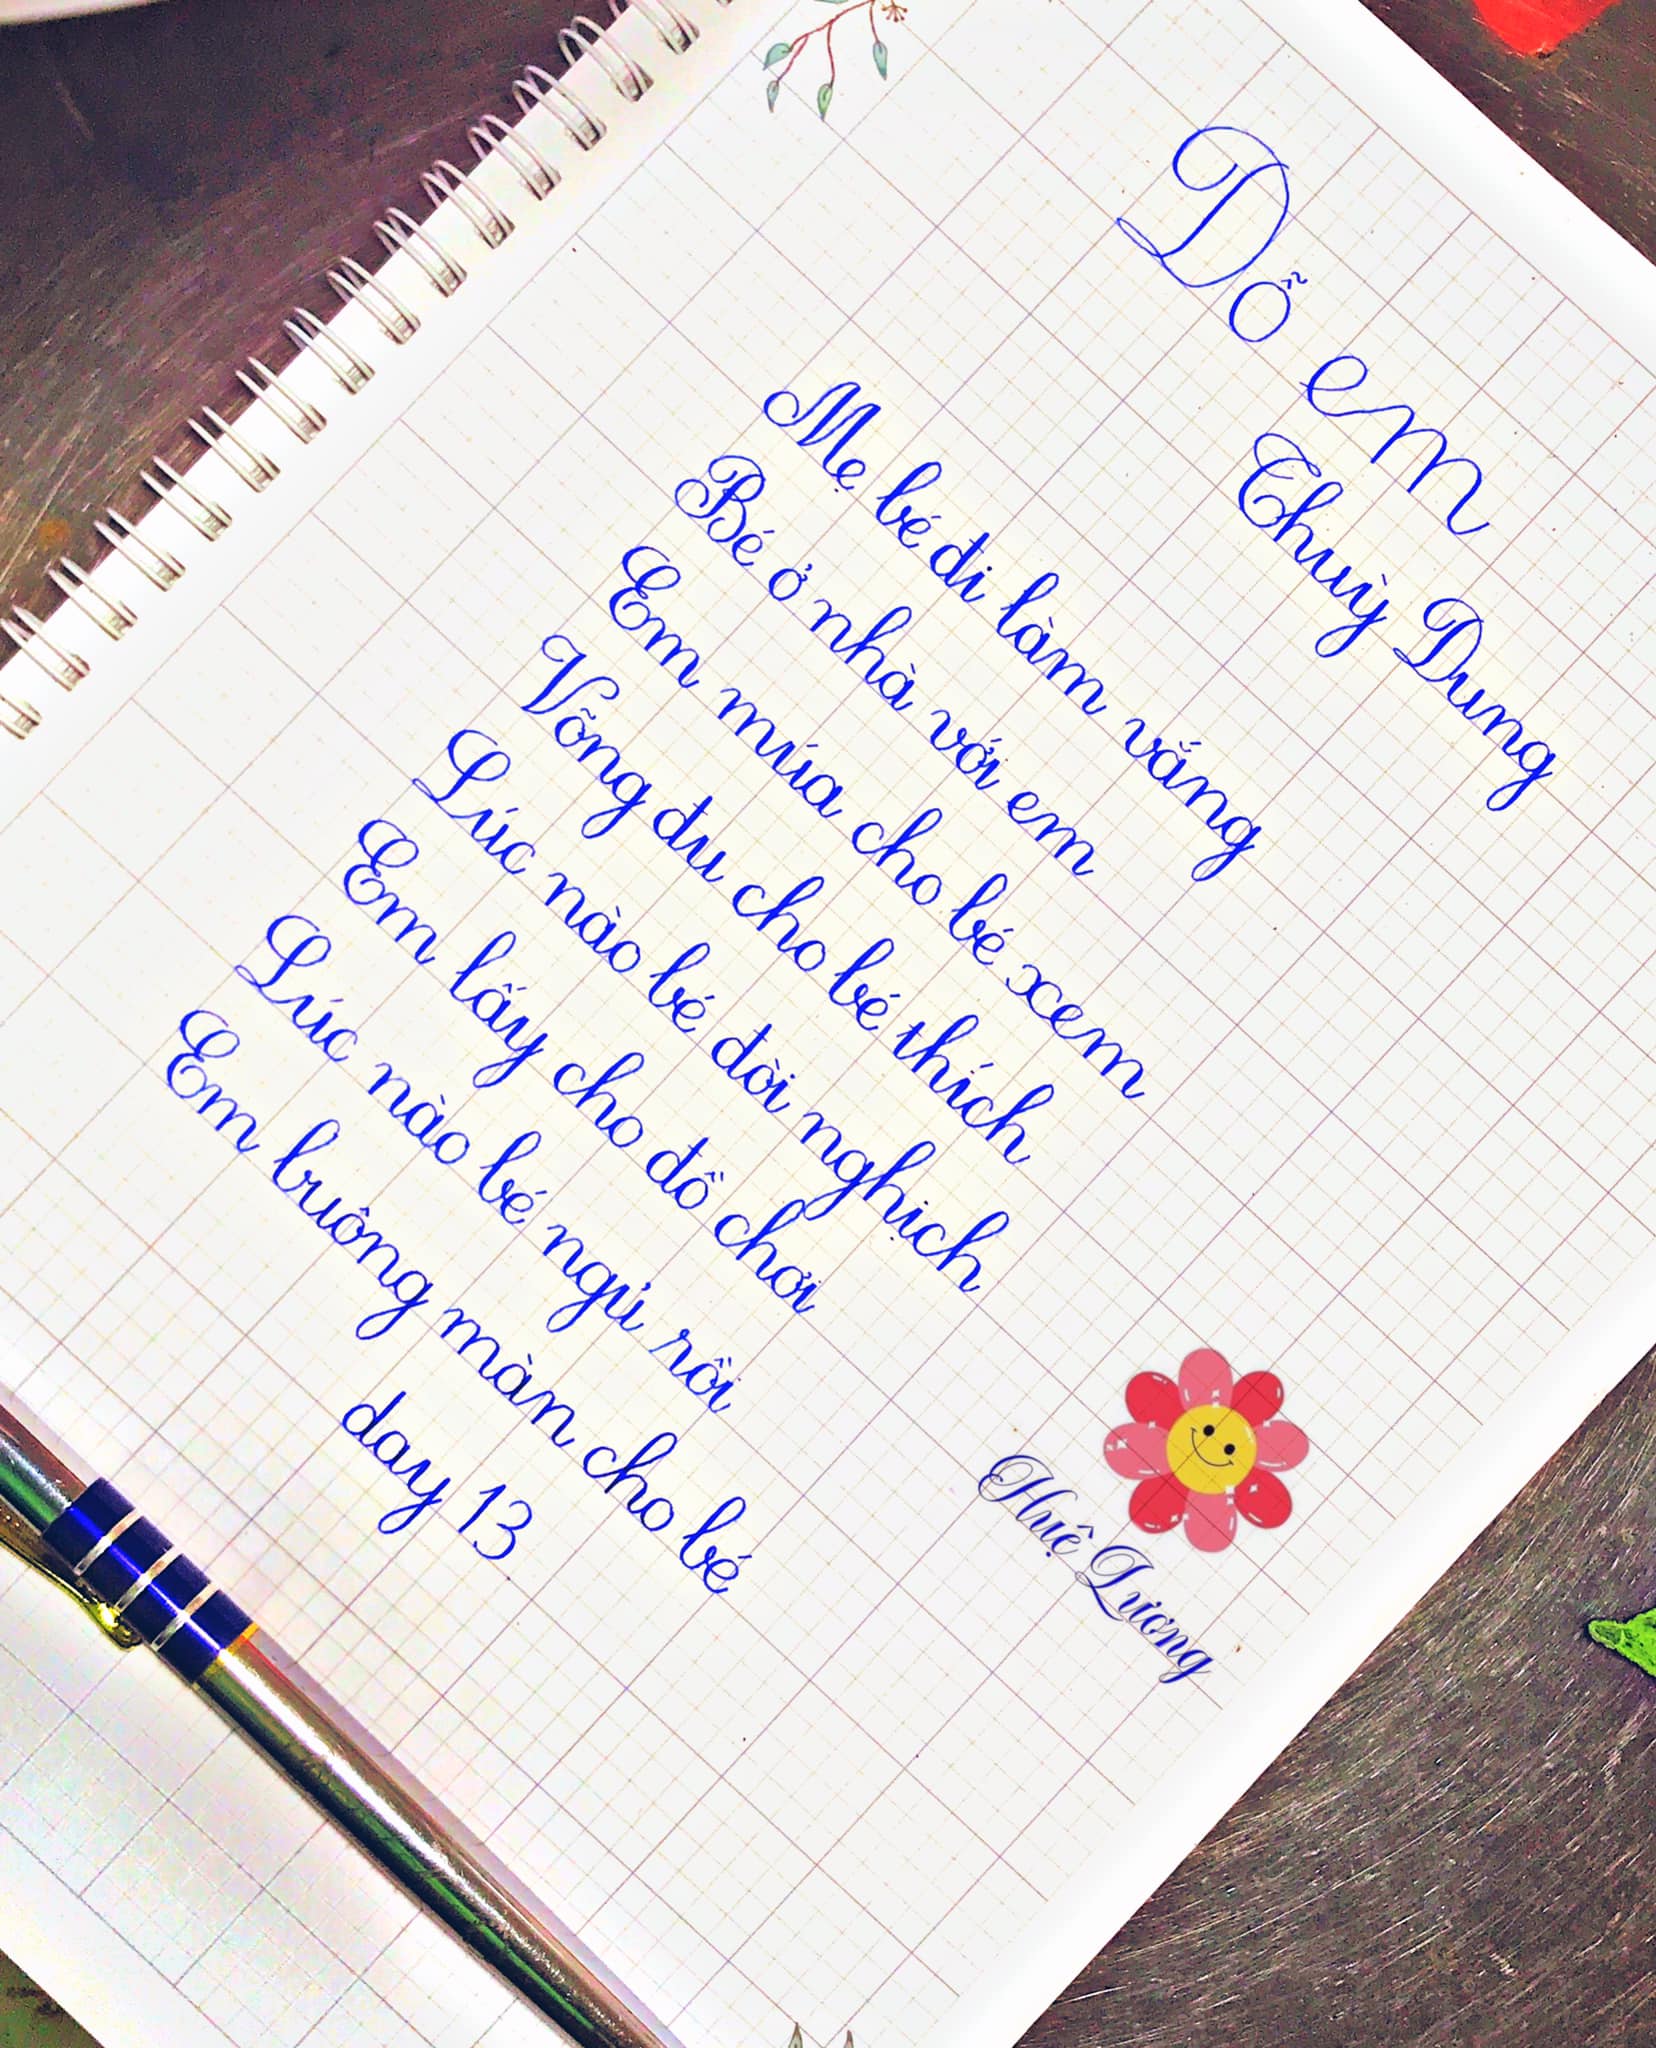 Dỗ em
Thuỳ Dung
Mẹ bé đi làm vắng
Bé ở nhà với em
Em múa cho bé xem
Võng đu cho bé thích
Lúc nào bé đòi nghịch
Em lấy cho đồ chơi
Lúc nào bé ngủ rồi
Em buông màn cho bé
day 13
Huệ Lương